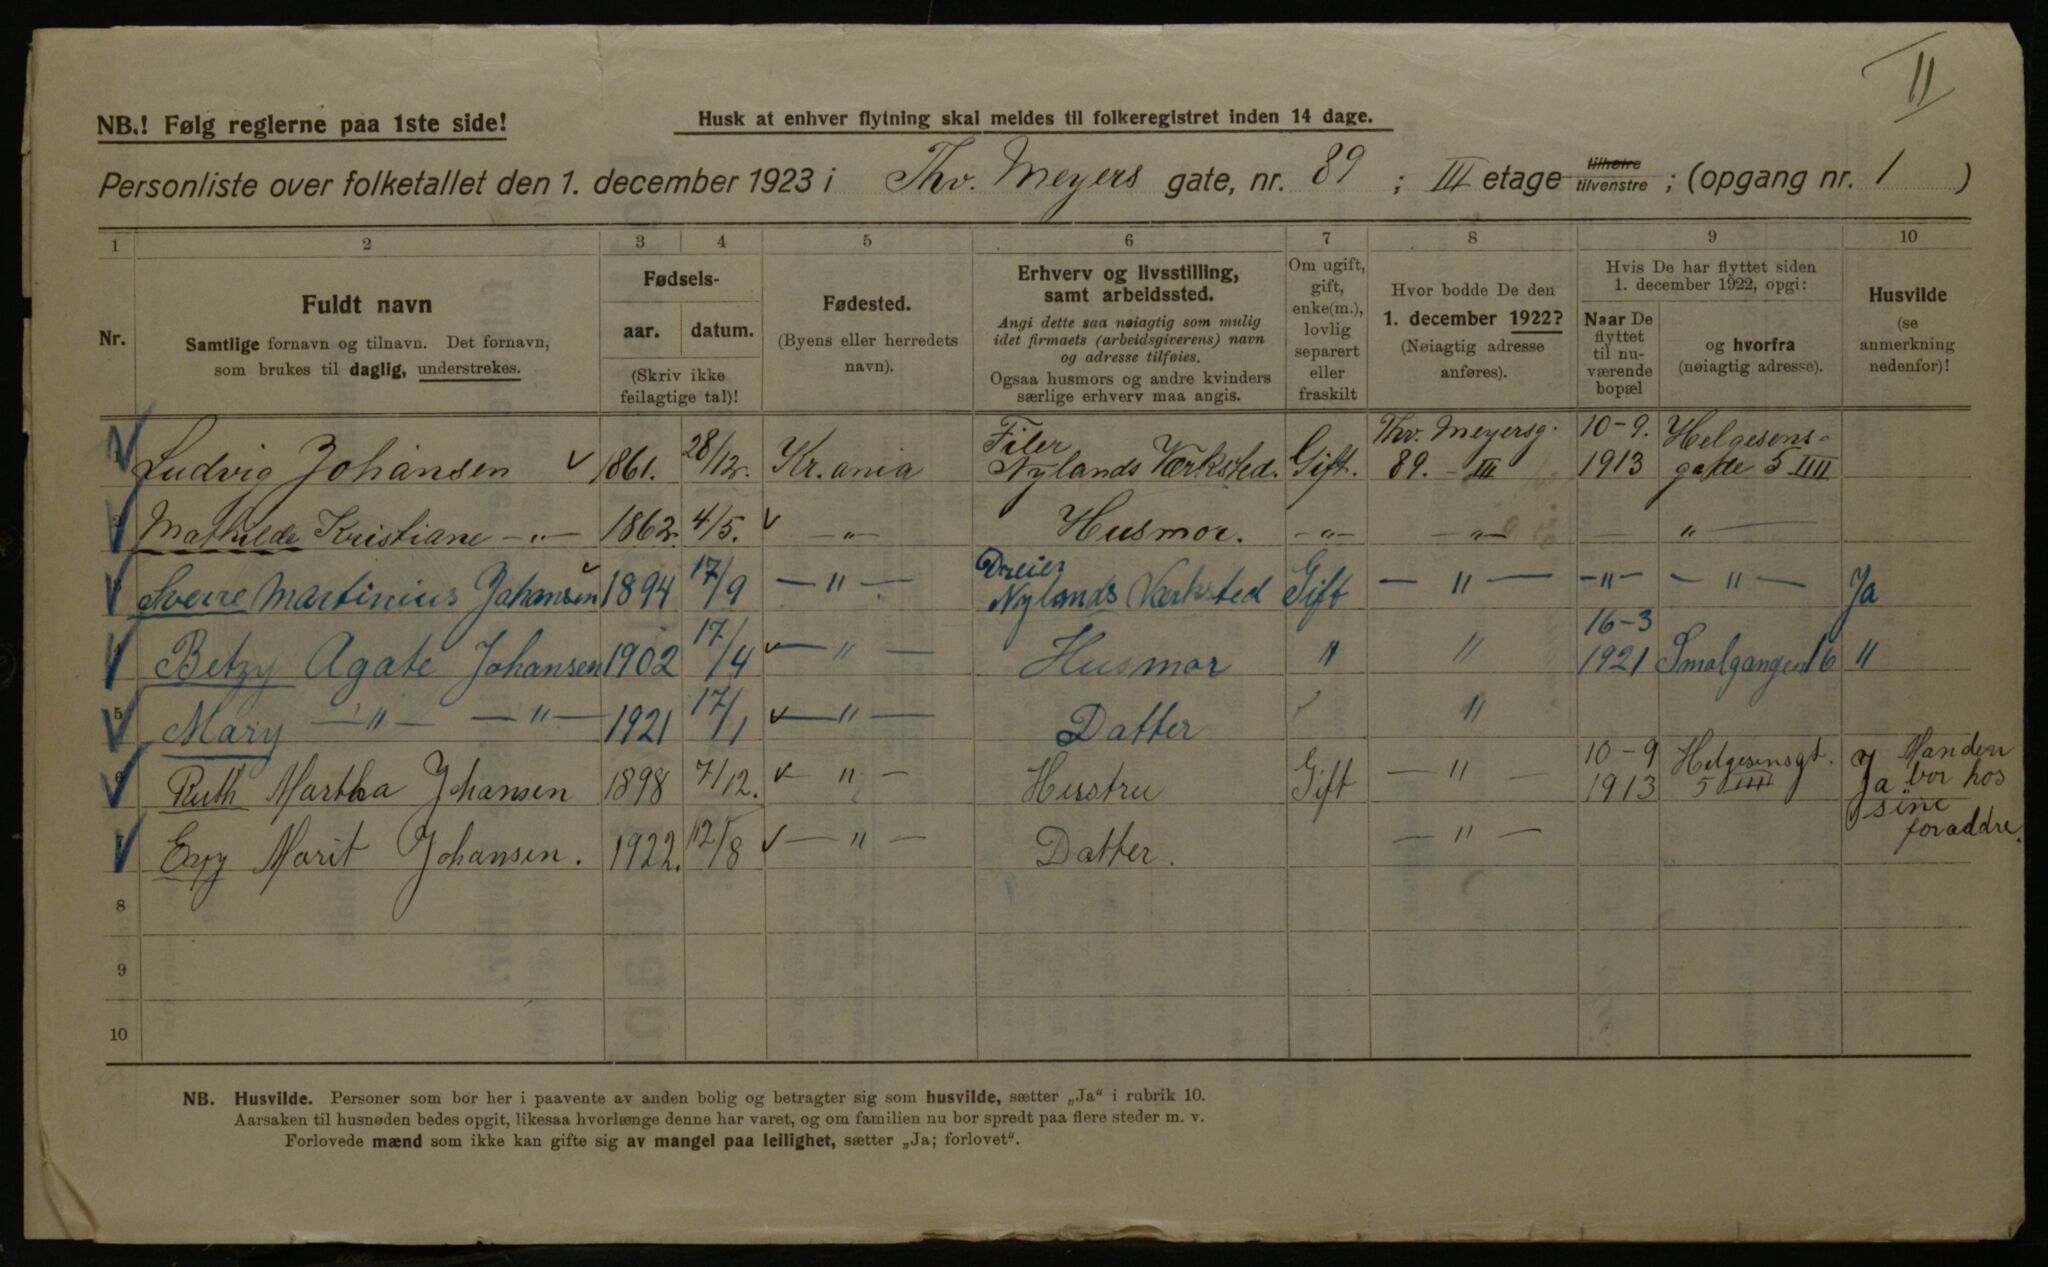 II
NB.! Følg reglerne paa 1ste side!
Husk at enhver flytning skal meldes til folkeregistret inden 14 dage.
Personliste over folketallet den 1. december 1923 i Thv. Meyers gate, nr. 89 ; III etage tilhøire tilvenstre ; (opgang nr. 1 )
1 2 3 4 5 6 7 8 9 10
Nr.
Fuldt navn
Samtlige fornavn og tilnavn. Det fornavn,
som brukes til daglig, understrekes.
Fødsels-
aar. datum.
(Skriv ikke
feilagtige tal)!
Fødested.
(Byens eller herredets
navn).
Erhverv og livsstilling,
samt arbeidssted.
Angi dette saa nøiagtig som mulig
idet firmaets (arbeidsgiverens) navn
og adresse tilføies.
Ogsaa husmors og andre kvinders
særlige erhverv maa angis.
Om ugift,
gift,
enke(m.),
lovlig
separert
eller
fraskilt
Hvor bodde De den
1. december 1922?
(Nøiagtig adresse
anføres).
Hvis De har flyttet siden
1. december 1922, opgi:
Naar De
flyttet
til nu-
værende
bopæl
og hvorfra
(nøiagtig adresse).
Husvilde
(se
anmerkning
nedenfor)!
1 Ludvig Johansen 1861. 28/12. Kr.ania Filer Nylands Værksted. Gift. Thv. Meyersg. 89. - III 10-9. 1913 Helgesens- gade 5 IIII
2 Mathilde Kristiane -"- 1862. 4/5. -"- Husmor. -"- -"- — "
3 Sverre Martinius Johansen 1894 17/9 -"- Dreier Nylands Værksted Gift -"- -"- -"- Ja
4 Betzy Agate Johansen 1902 17/4 -"- Husmor " " 16-3 1921 Smalgangen 16 "
5 Mary -"- -"- 1921 17/1 -"- Datter "
6 Ruth Martha Johansen 1898 7/12. -"- Hustru Gift -"- 10-9 1913 Helgesensgt. 5 IIII Ja Manden bor hos sine foraddre.
7 Marit Johansen. 1922. 12/8 -"- Datter. -"-
8
9
10
NB. Husvilde. Personer som bor her i paavente av anden bolig og betragter sig som husvilde, sætter „Ja“ i rubrik 10.
Aarsaken til husnøden bedes opgit, likesaa hvorlænge denne har varet, og om familien nu bor spredt paa flere steder m. v.
Forlovede mænd som ikke kan gifte sig av mangel paa leilighet, sætter „Ja; forlovet“.